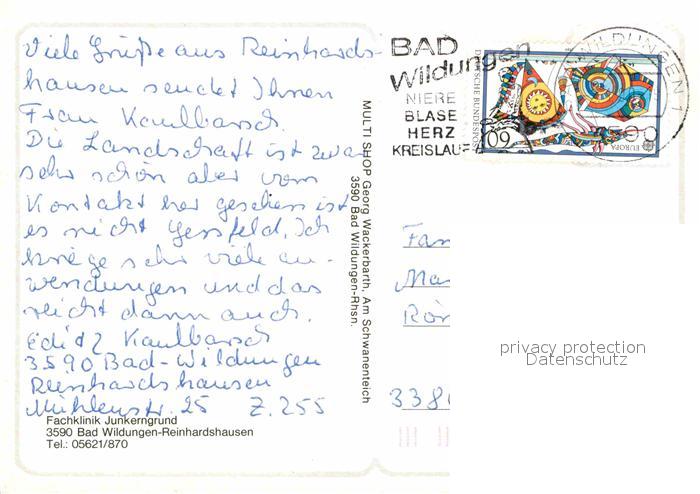 Viele Grüße aus Reinhards-
hausen sendet Ihnen
Frau Kaulbarsch
Die Landschaft ist zwar
sehr schön aber vom
Kontakt her gesehen ist
es nicht Ich
kriege sehr viele an-
wendungen und das
reicht dann auch.
Edith Kaulbarsch
3590 Bad-Wildungen
Reinhardshausen
Mühlenstr. 25 Z. 255
Fachklinik Junkerngrund
3590 Bad Wildungen-Reinhardshausen
Tel.: 05621/870
MULTI SHOP Georg Wackerbarth, Am Schwanenteich
3590 Bad Wildungen-Rhsn.
BAD
Wildungen
NIERE
BLASE
HERZ
KREISLAUF
WILDUNGEN 1
3590
DEUTSCHE BUNDESPOST
60
EUROPA
Fam
Ma
Rör
338
privacy protection
Datenschutz